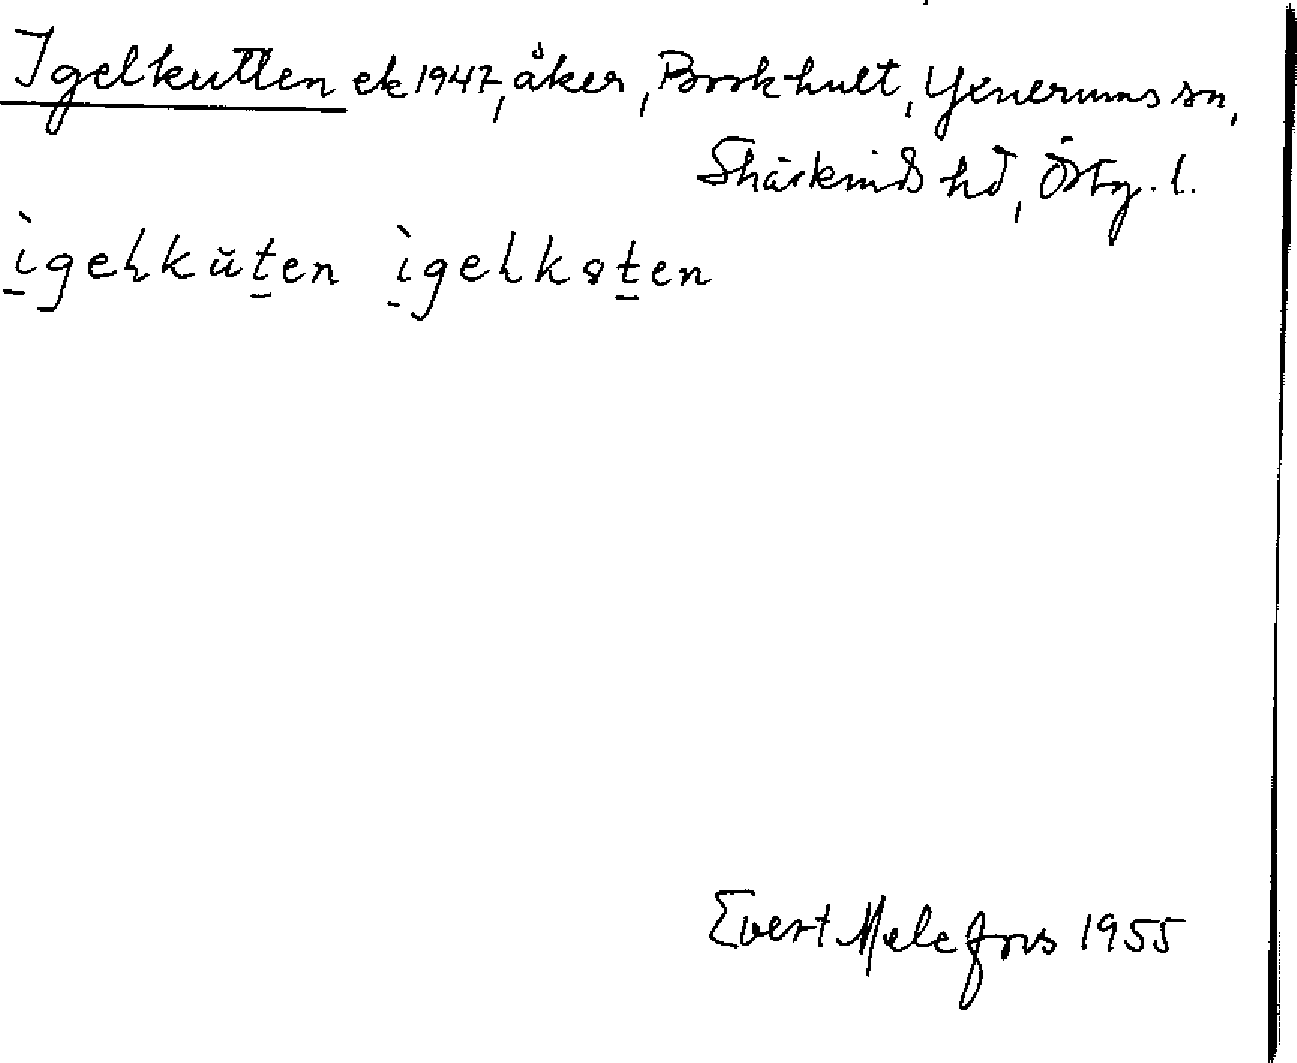 Igelkutten ek 1947, åker, Borkhult, Yxnerums sn,
Skärkinds hd, Östg. l.
ìgelkŭten ìgelkoten
Evert Melefors 1955